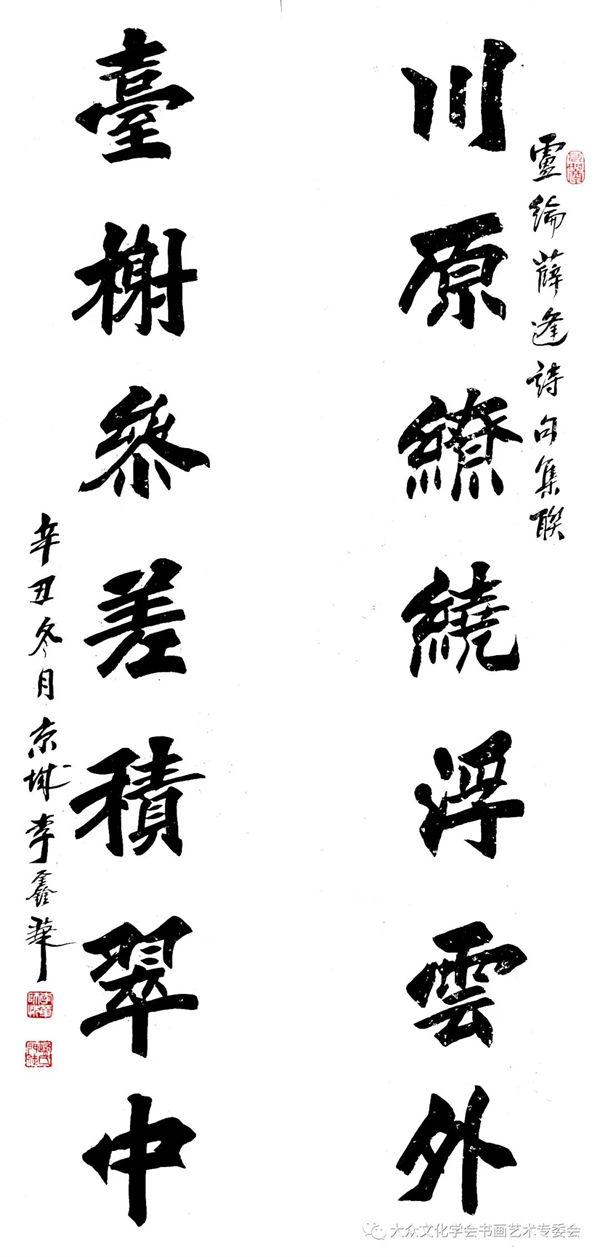 盧綸薛逢詩句集聯
川原繚繞浮雲外
臺榭參差積翠中
辛丑冬月京城李鑫華
大众文化学会书画艺术专委会